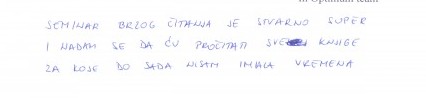 m Optimum team
SEMINAR BRZOG ČITANJA JE STVARNO SUPER
I NADAM SE DA ĆU PROČITATI SVE KNJIGE
ZA KOJE DO SADA NISAM IMALA VREMENA